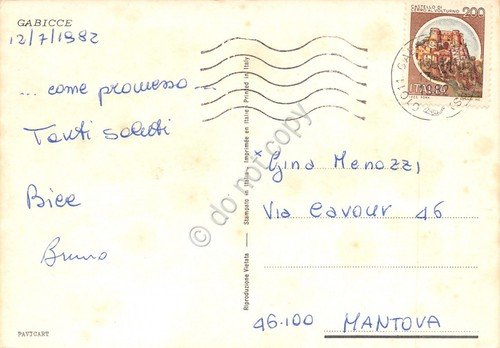 GABICCE
12/7/1982
... come promesso ...
Tanti saluti
Bice
Bruno
Riproduzione Vietata - Stampato in Italia - Imprimée en Italie - Printed in Italy
PAVICART
CASTELLO DI
CERRO AL VOLTURNO
200
ITALIA
Gina Menozzi,
Via Cavour 46
46.100 MANTOVA
do not copy